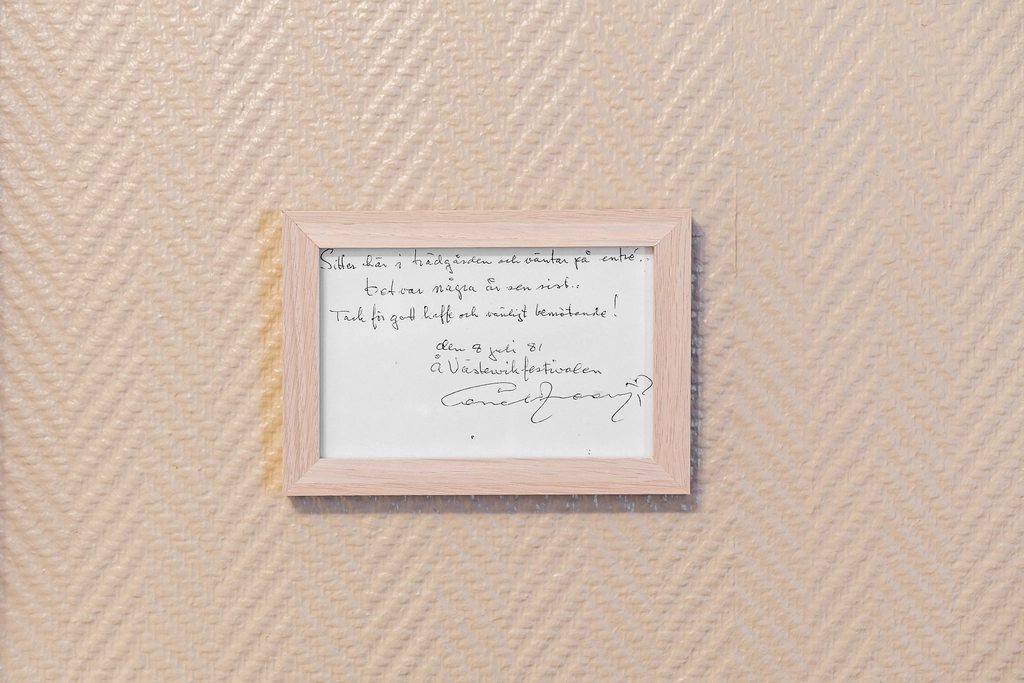 Sitter här i trädgården och väntar på entré..
Det var några år sen sist..
Tack för gott kaffe och vänligt bemötande!
den 8 juli 81
å Västervikfestivalen